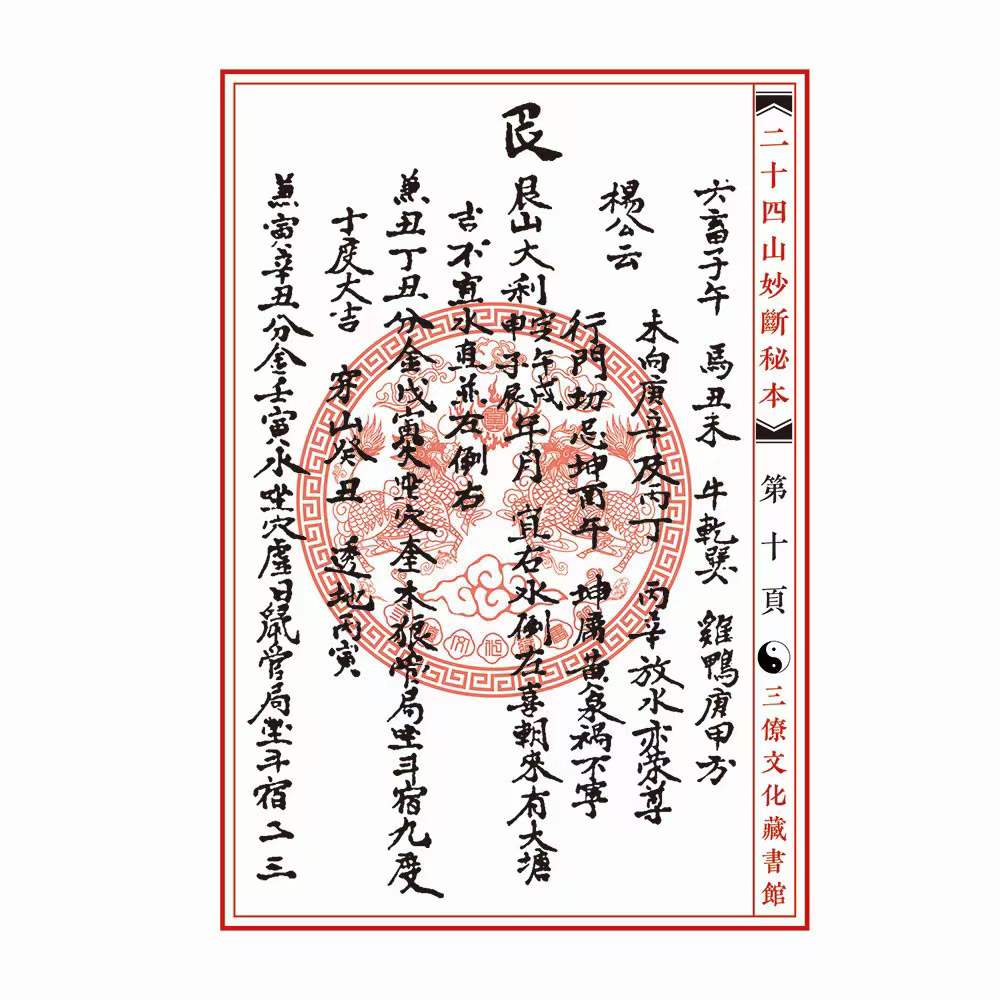 《二十四山妙斷秘本》 第十頁 三僚文化藏書館
六畜子午 馬丑未 牛乾巽 雞鴨庚甲方
楊公云
未向庚辛及丙丁 丙辛放水亦榮尊
行門切忌坤兩午 坤屬黃泉禍不寧
艮
艮山大利寅午戌申子辰年月 宜右水倒左喜朝來有大塘
吉不宜水直並左倒右
兼丑丁丑分金戊寅火坐穴奎木狼管局坐斗宿九度
十度大吉 穿山癸丑 透地丙寅
兼寅辛丑分金壬寅水坐穴虛日鼠管局坐斗宿二三